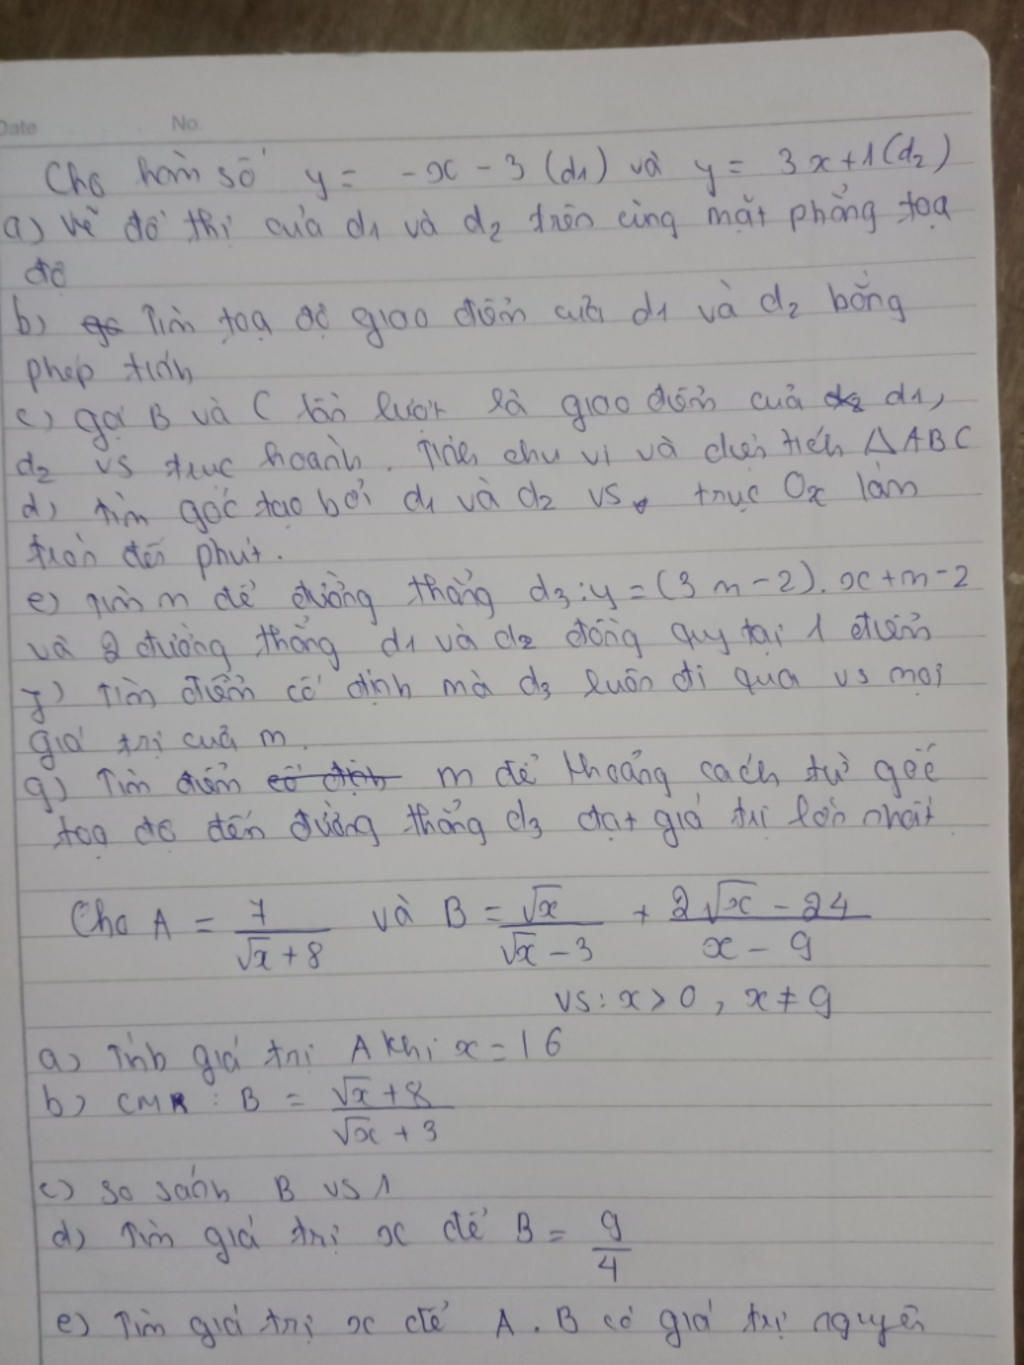 Date No.
Cho hàm số y = -x - 3 (d1) và y = 3x+1 (d2)
a) vẽ đồ thị của d1 và d2 trên cùng mặt phẳng toạ
độ
b) Tìm toạ độ giao điểm của d1 và d2 bằng
phép tính
c) gọi B và C lần lượt là giao điểm của d1,
d2 vs trục hoành. Tính chu vi và diện tích △ABC
d) tìm góc tạo bởi d1 và d2 vs trục Ox làm
tròn đến phút.
e) tìm m để đường thẳng d3: y = (3m-2).x+m-2
và 2 đường thẳng d1 và d2 đồng quy tại 1 điểm
f) Tìm điểm cố định mà d3 luôn đi qua vs mọi
giá trị của m.
g) Tìm điểm cố định m để khoảng cách từ gốc
toạ độ đến đường thẳng d3 đạt giá trị lớn nhất
Cho A = 7/(√x + 8) và B = √x/(√x - 3) + (2√x - 24)/(x - 9)
vs: x > 0, x ≠ 9
a) Tính giá trị A khi x = 16
b) CMR: B = (√x + 8)/(√x + 3)
c) so sánh B vs 1
d) Tìm giá trị x để B = 9/4
e) Tìm giá trị x để A.B có giá trị nguyên